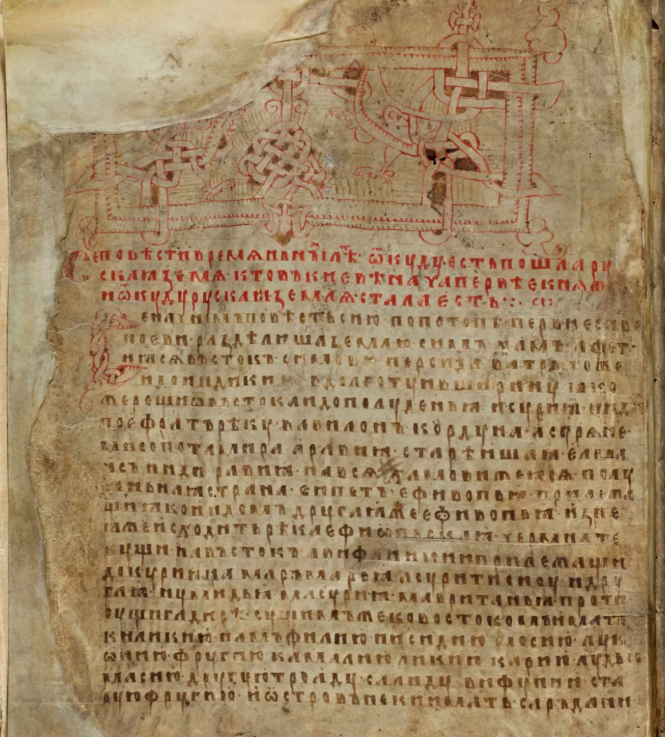 Се повѣсти времѧньны лѣ. ѿкуду есть пошла ру
скаꙗ земѧ. кто въ києвѣ нача первѣє кнѧ
и ѿкуду рускаꙗ землѧ стала єсть.
Се начнемъ повѣсть сию. по потопѣ. первиє снве
ноєви. раздѣлиша землю. симъ. хамъ. афет.
и ꙗсѧ въстокъ. симови персида. ватрь. тоже
и до индикиꙗ в долготу и в ширину ꙗко
же рещи ѿ въстока и до полуденьꙗ. и суриꙗ. инди
по ефратъ рѣку. вавилонъ. кордуна. асурѧне.
месопотамира. аравиꙗ. старѣишаꙗ. єлма
исъ. инди. равиꙗ. на всѧ хамови же ꙗсѧ. полу
деньнаꙗ страна. єюпетъ. ефивопьꙗ. прилежа
щиꙗ ко индомъ. другаꙗ же ефивопьꙗ. из не
ꙗже исходить рѣка ефиѡпьскаꙗ. чермна те
кущи на въстокъ. ливи прилежащи
до куриниꙗ. маръмарьꙗ. сурити и дру
гаꙗ. нумидьꙗ. масуриꙗ. мавританьꙗ. проти
сущи гадирѣ. сущимъ же ко востокомъ имать
киликию. памъфилию. писидию. мосию. лук
ѡнию. фругию. камалию. ликию. карию. лудью
масию другую. троаду. вифунию. ста
рую фругию. и ѡстровы неки имать. саръдани